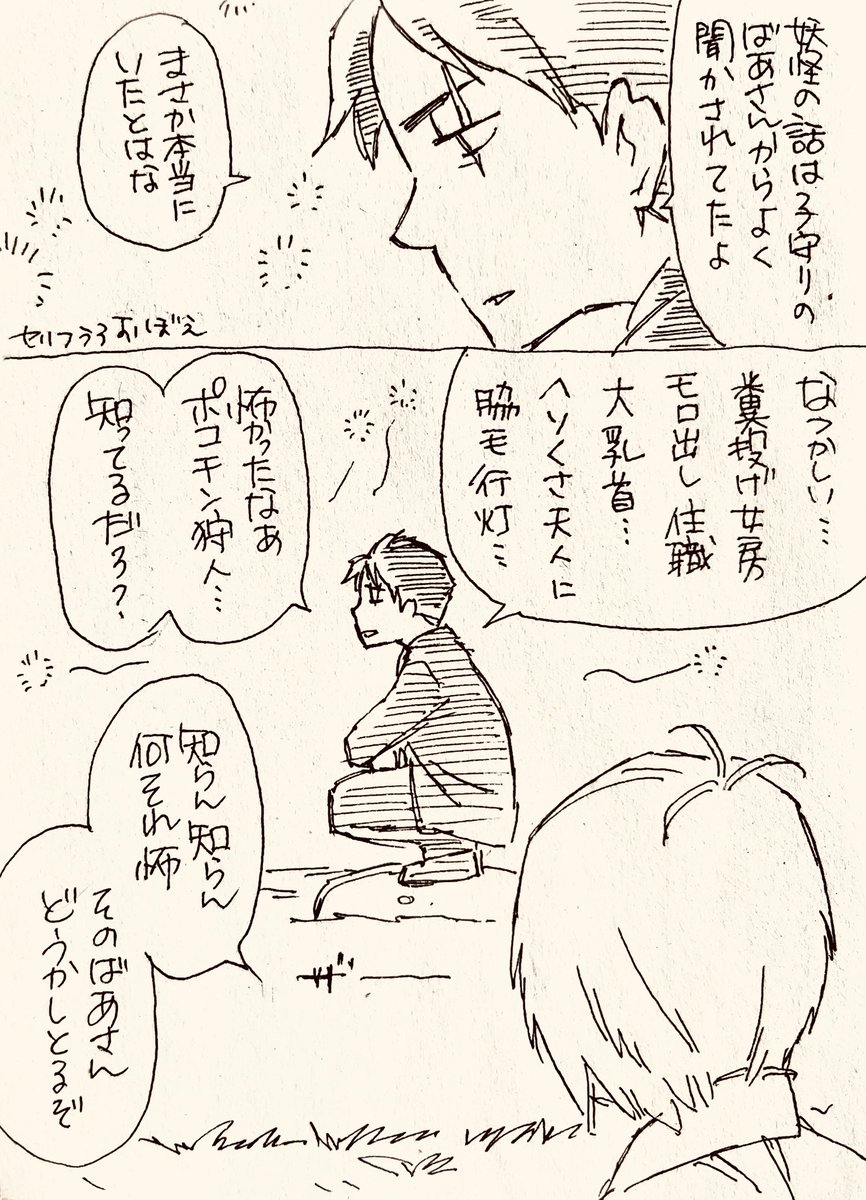 妖怪の話は子守りの
ばあさんからよく
聞かされてたよ
まさか本当に
いたとはな
セリフうろおぼえ
なつかしい…
糞投げ女房
モロ出し住職
大乳首…
へそくさ天人に
脇毛行灯…
怖かったなあ
ポコチン狩人…
知ってるだろ？
知らん知らん
何それ怖
そのばあさん
どうかしとるぞ
ザーー